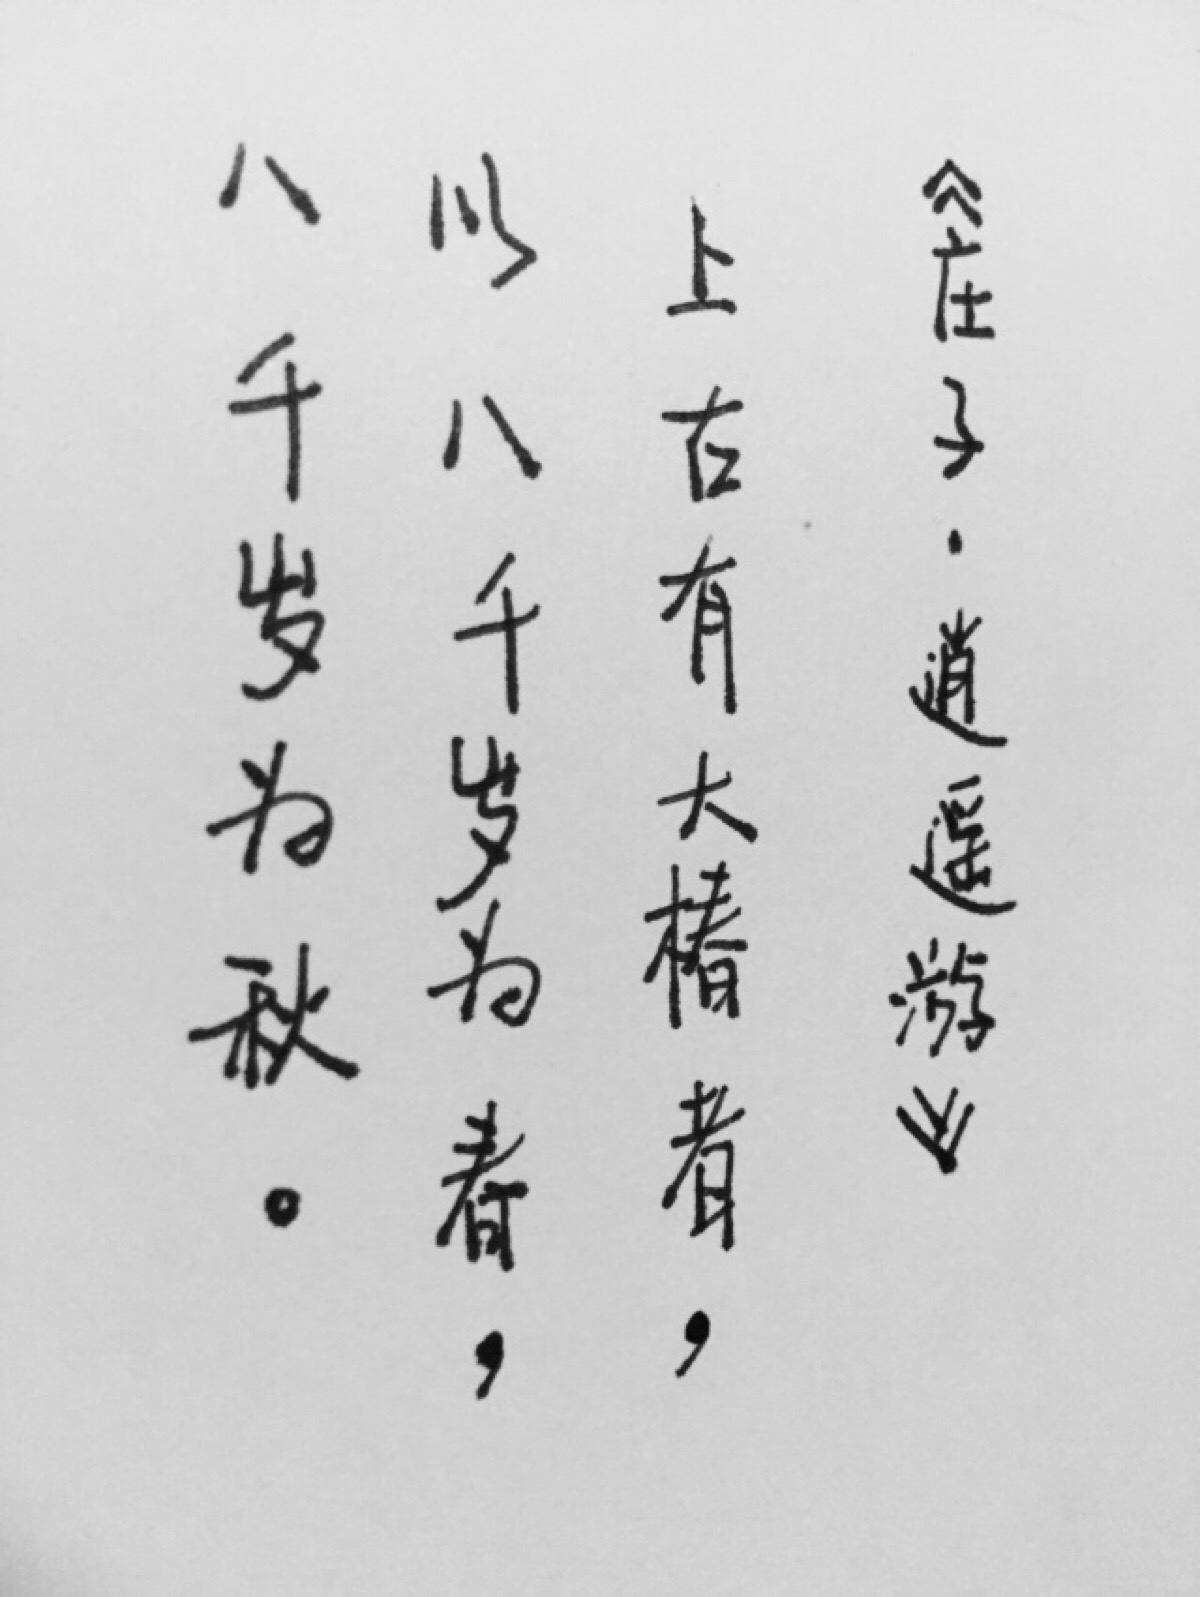 《庄子·逍遥游》
上古有大椿者，
以八千岁为春，
八千岁为秋。